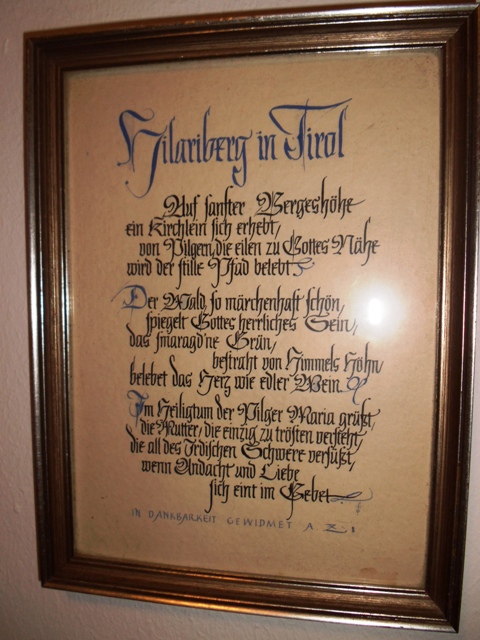 Hilariberg in Tirol
Auf sanfter Bergeshöhe
ein Kirchlein sich erhebt,
von Pilgern, die eilen zu Gottes Nähe
wird der stille Pfad belebt
Der Wald, so märchenhaft schön,
spiegelt Gottes herrliches Sein,
das smaragd'ne Grün,
bestraht von Himmels Höhn
belebet das Herz wie edler Wein.
Im Heiligtum der Pilger Maria grüßt,
die Mutter, die einzig zu trösten versteht,
die all des Irdischen Schwere versüßt,
wenn Andacht und Liebe
sich eint im Gebet
IN DANKBARKEIT GEWIDMET A. Z.